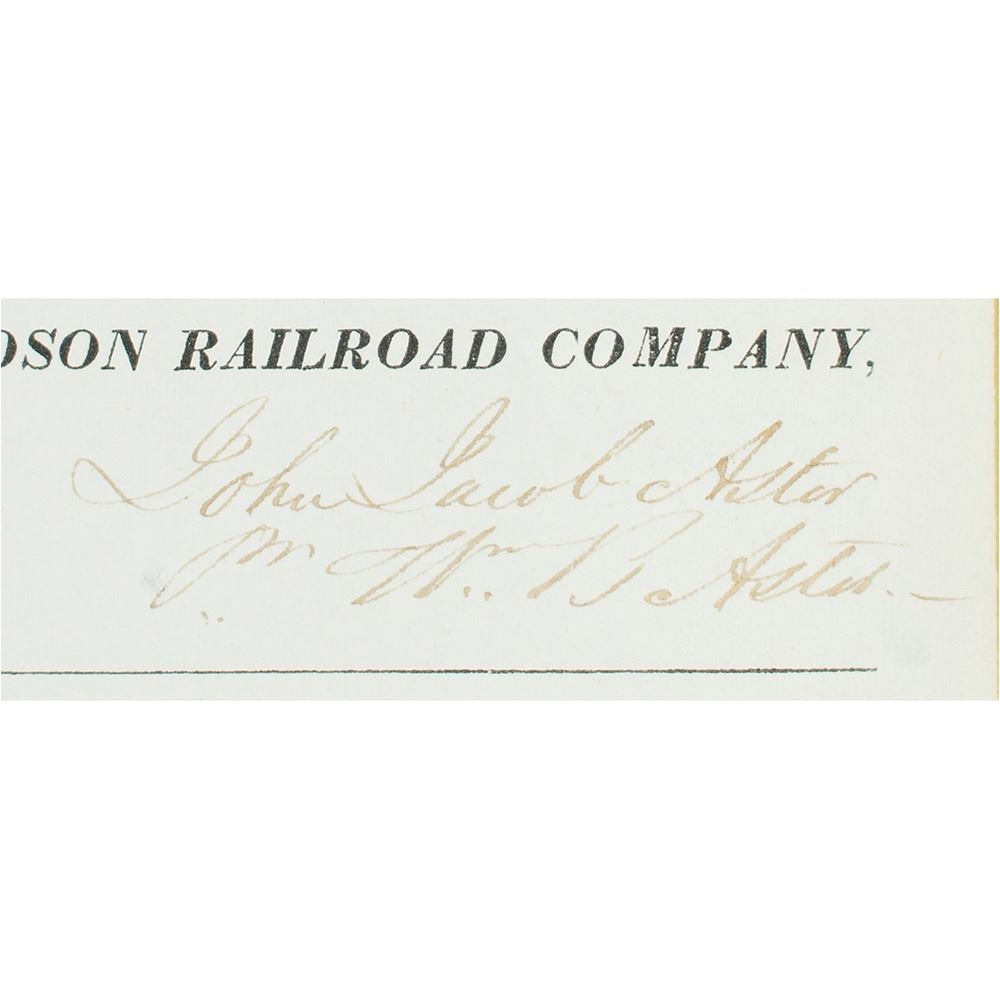 DSON RAILROAD COMPANY,
John Jacob Astor
pr Wm. B Astor. —